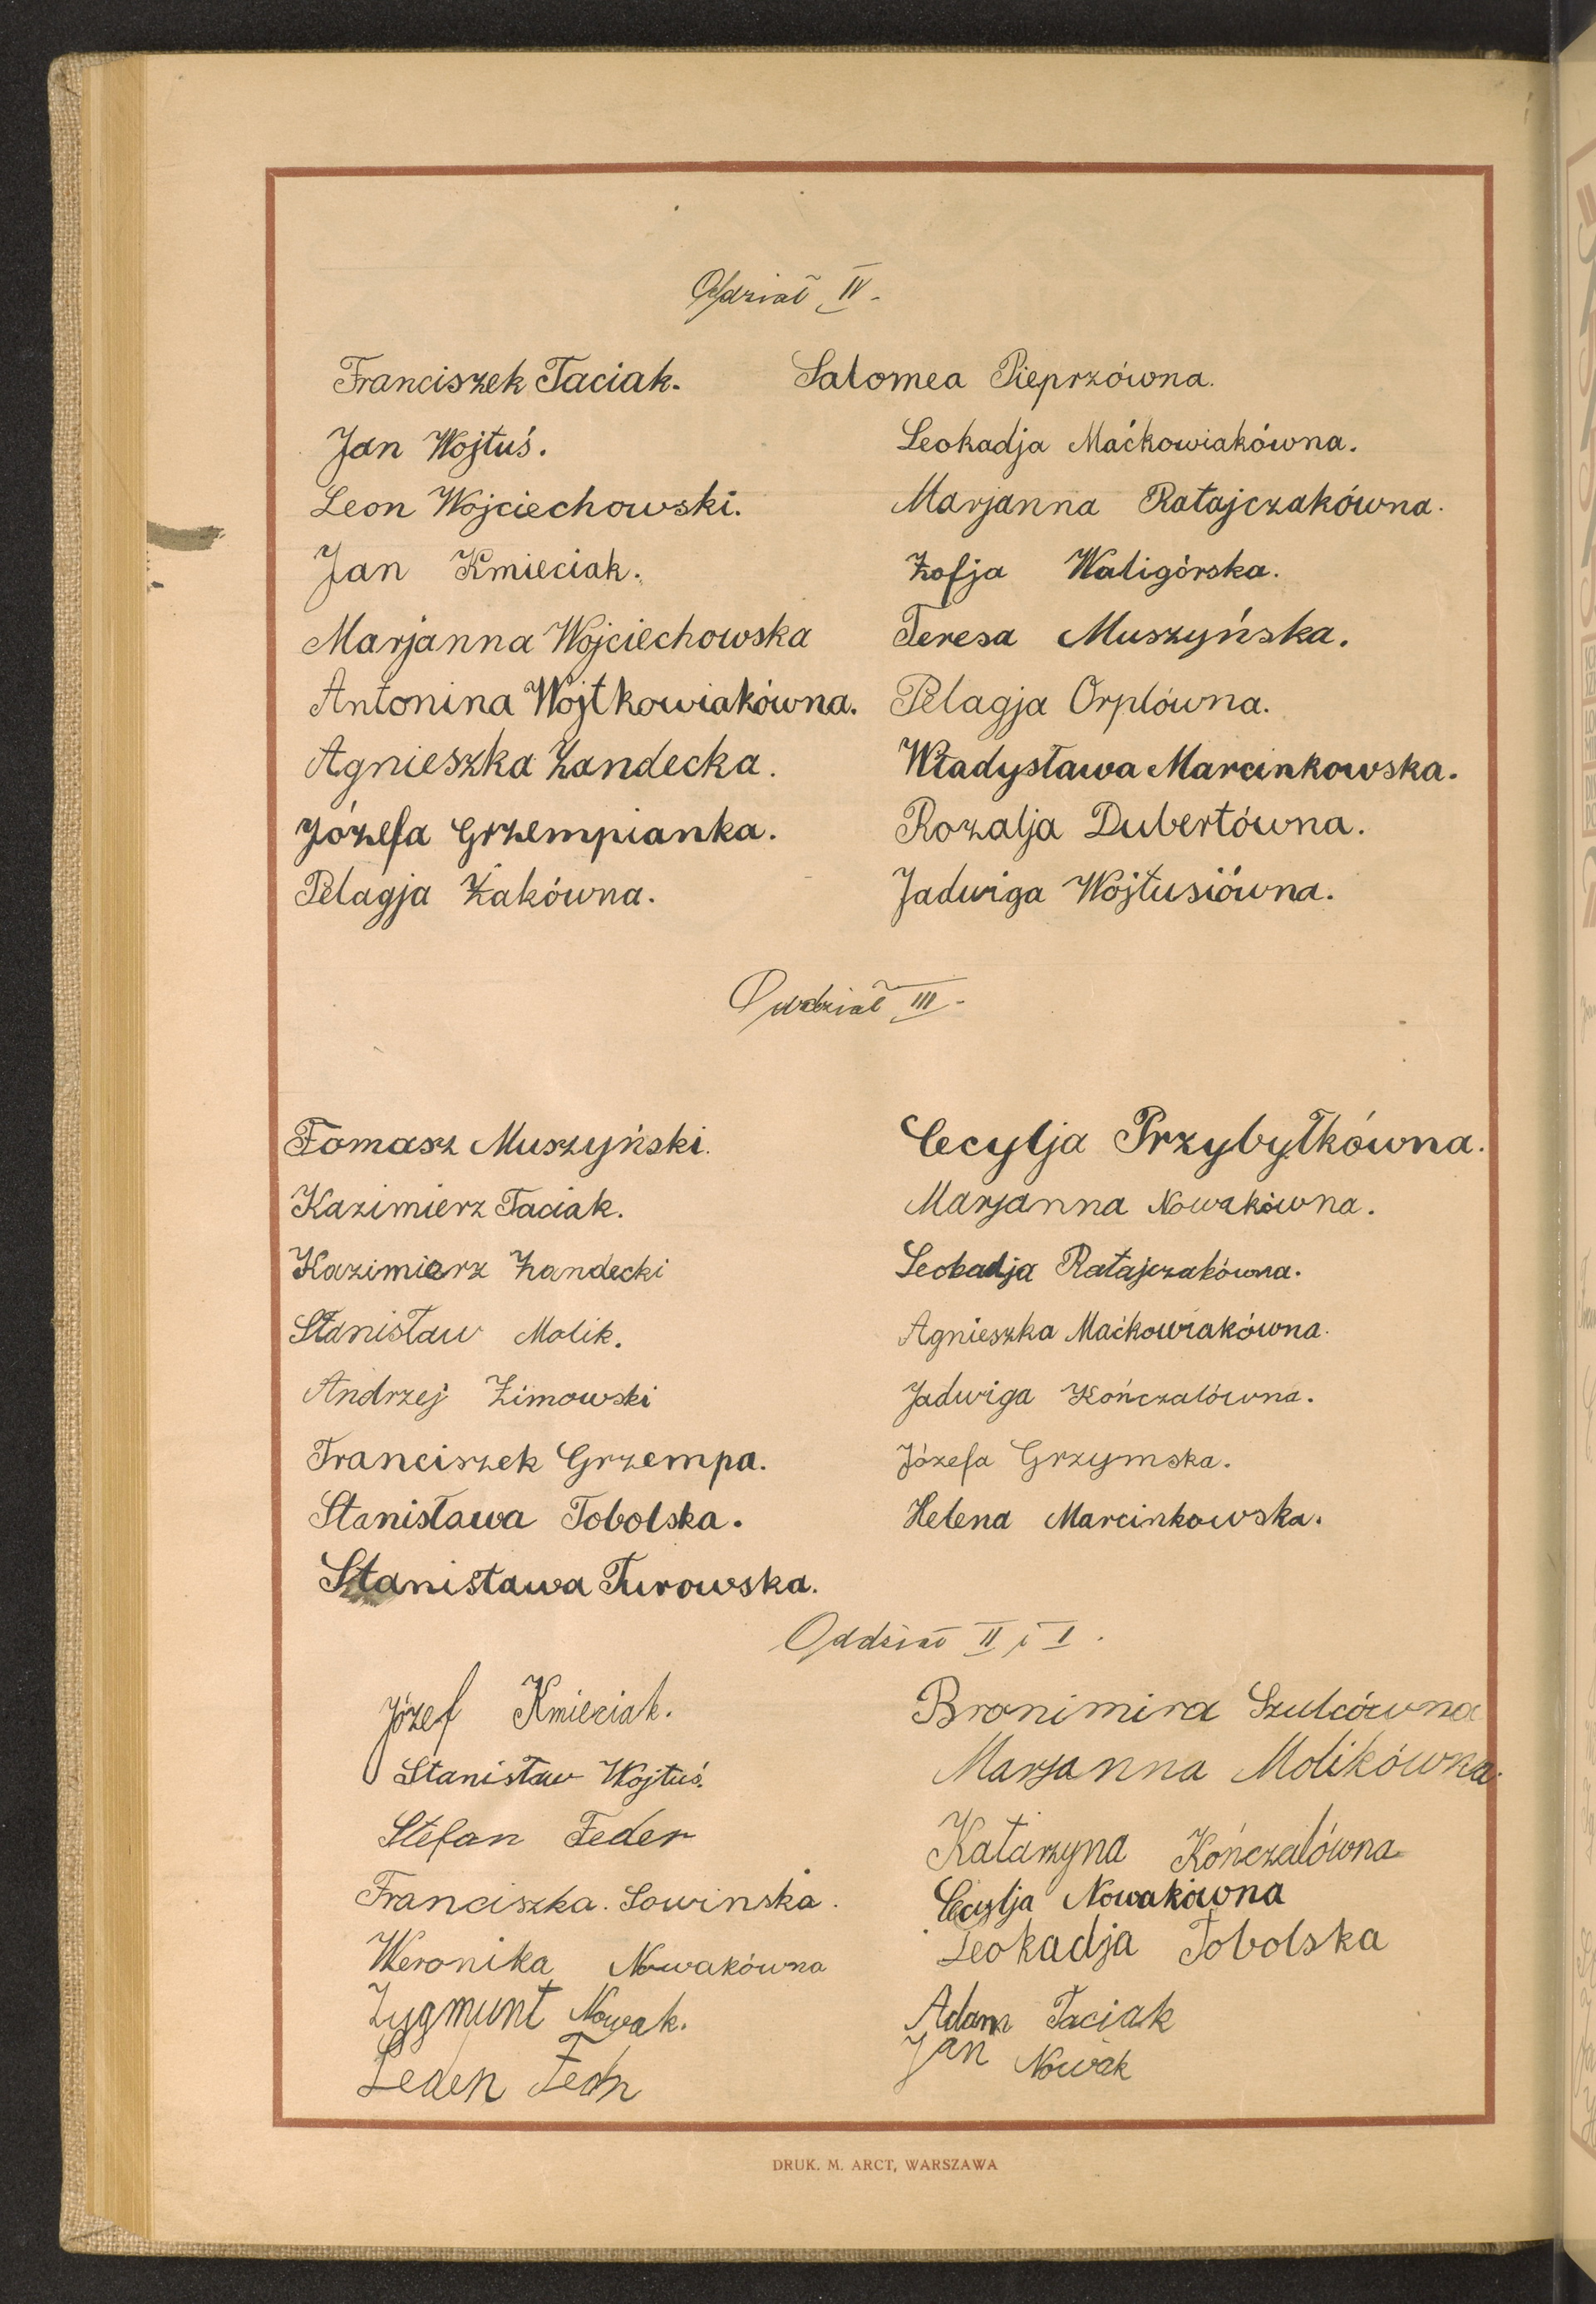 Oddział IV.
Franciszek Taciak.
Salomea Pieprzówna.
Jan Wojtuś.
Leokadja Maćkowiakówna.
Leon Wojciechowski.
Marjanna Ratajczakówna.
Jan Kmieciak.
Zofja Waligórska.
Marjanna Wojciechowska
Teresa Muszyńska.
Antonina Wojtkowiakówna.
Pelagja Orplówna.
Agnieszka Zandecka.
Władysława Marcinkowska.
Józefa Grzempianka.
Rozalja Dubertówna.
Pelagja Żakówna.
Jadwiga Wojtusiówna.
Oddział III.
Tomasz Muszyński.
Cecylja Przybyłkówna.
Kazimierz Taciak.
Marjanna Nowakówna.
Kazimierz Zandecki
Leokadja Ratajczakówna.
Stanisław Molik.
Agnieszka Maćkowiakówna.
Andrzej Zimowski
Jadwiga Kończalówna.
Franciszek Grzempa.
Józefa Grzymska.
Stanisława Tobolska.
Helena Marcinkowska.
Stanisława Turowska.
Oddział II i I.
Józef Kmieciak.
Bronimira Szulcówna
Stanisław Wojtuś.
Marjanna Molikówna.
Stefan Feder
Katarzyna Kończalówna
Franciszka Sowinska.
Cecylja Nowakówna
Weronika Nowakówna
Leokadja Tobolska
Zygmunt Nowak.
Adam Taciak
Jan Nowak
DRUK. M. ARCT, WARSZAWA